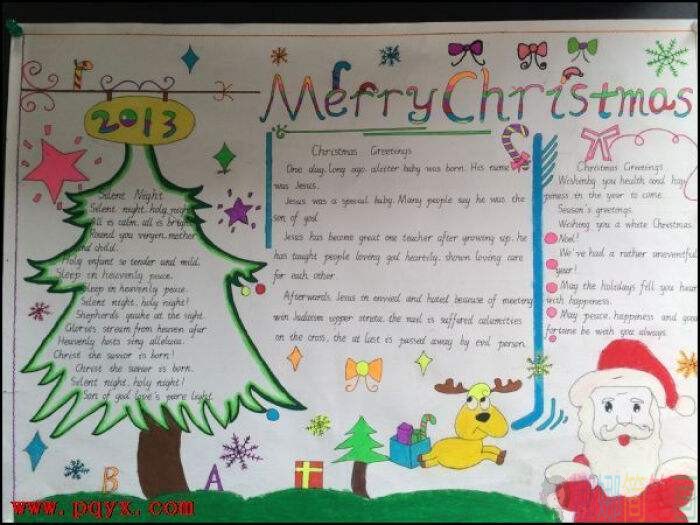 Merry Christmas
2013
Silent Night
Silent night, holy night
All is calm, all is bright
Round you vergen mother
and child.
Holy infant so tender and mild,
Sleep in heavenly peace,
Sleep in heavenly peace.
Silent night, holy night!
Shepherds quake at the sight.
Glories stream from heaven afar
Heavenly hosts sing alleluia.
Christ the savior is born!
Christ the savior is born.
Silent night, holy night!
Son of god love's pure light
Christmas Greetings
One day, long ago, a better baby was born. His name
was Jesus.
Jesus was a special baby. Many people say he was the
son of god
Jesus has become great one teacher after growing up, he
has taught people loving god heartily, shown loving care
for each other.
Afterwards, Jesus in envied and hated because of meeting
win Judaism upper strata, the nail is suffered calamities
on the cross, the at last is passed away by evil person.
Christmas Greetings
Wishing you health and hap
piness in the year to come.
Season's greetings.
Wishing you a white Christmas.
Noel!
We've had a rather uneventful
year!
May the holidays fill you hear
with happiness.
May peace, happiness and good
fortune be with you always.
B A
www.pqyx.com